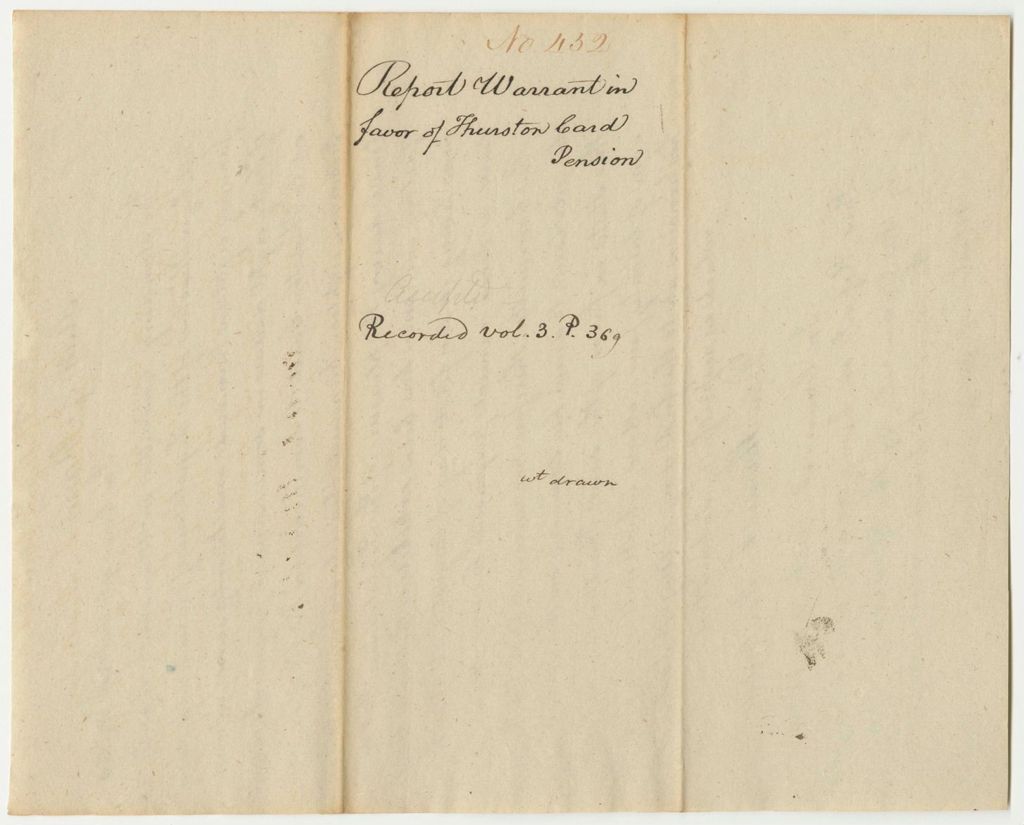 No 432
Report Warrant in
favor of Thurston Card
Pension
Accepted
Recorded vol. 3. P. 369
wt drawn